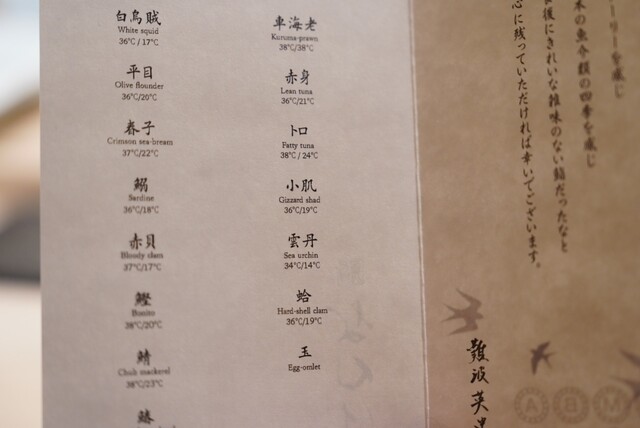 白烏賊
White squid
36℃ / 17℃
平目
Olive flounder
36℃/20℃
春子
Crimson sea-bream
37℃/22℃
鰯
Sardine
36℃/18℃
赤貝
Bloody clam
37℃/17℃
鰹
Bonito
38℃/20℃
鯖
Chub mackerel
38℃/23℃
車海老
Kuruma-prawn
38℃/38℃
赤身
Lean tuna
36℃/21℃
トロ
Fatty tuna
38℃ / 24℃
小肌
Gizzard shad
36℃/19℃
雲丹
Sea urchin
34℃/14℃
蛤
Hard-shell clam
36℃/19℃
玉
Egg-omlet
ーリーを感じ
本の魚介類の四季を感じ
後にきれいな雑味のない鮨だったなと
心に残っていただければ幸いでございます。
難波英
A B M